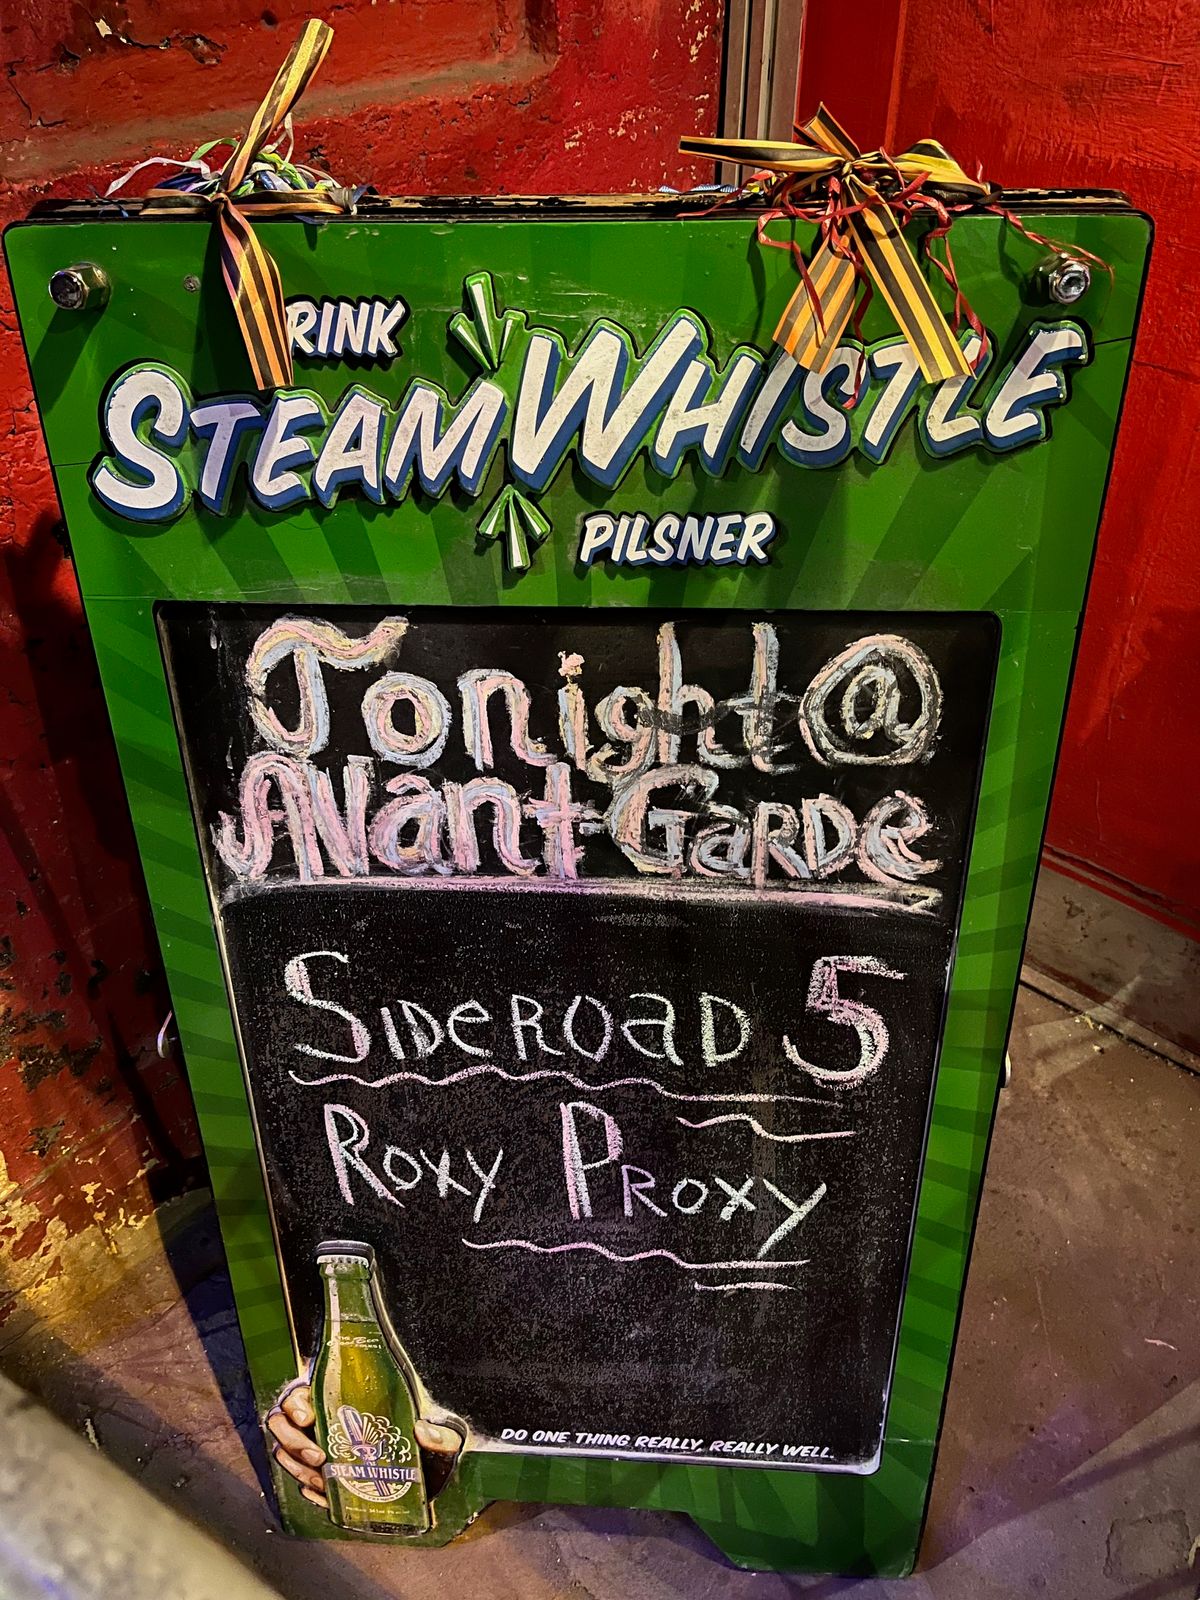 DRINK
STEAM WHISTLE
PILSNER
Tonight @
AVant-GaRDe
SiDeROaD 5
Roxy PRoxy
STEAM WHISTLE
DO ONE THING REALLY, REALLY WELL.